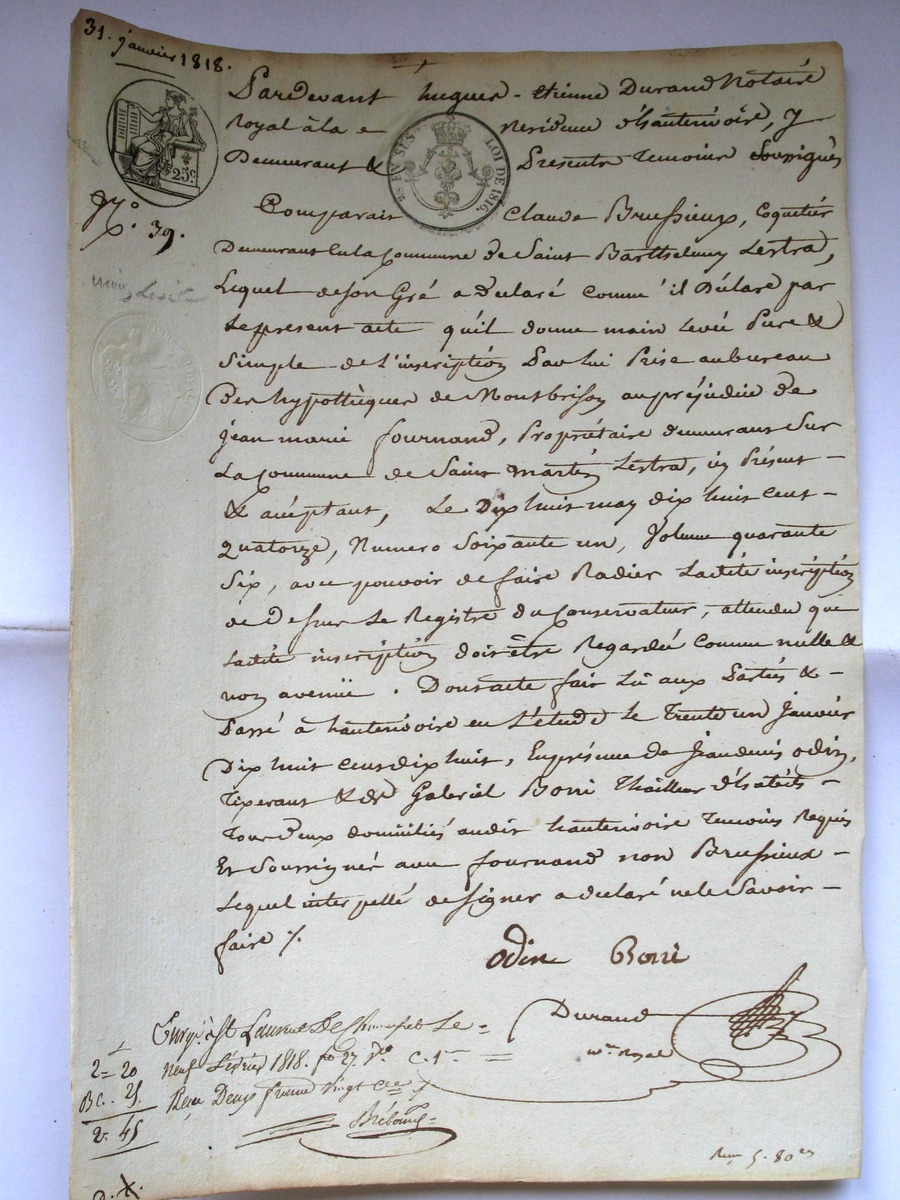 31. janvier 1818.
Pardevant hugues-etienne Durand Notaire
Royal à la Residence d'hauterivoire, y
Demeurant & Presents Temoins Soussignés
25c
28 AV SUR LOI DE 1816.
N.o 39.
Comparait Claude Brussieux, Coquetier
Demeurant en la Commune de Saint Barthelemy Lestra,
Lequel de son Gré a declaré comme il Déclare par
Le present acte qu'il donne main levée Pure &
Simple de L'inscription Par Lui Prise au bureau
Des hypothèques de Montbrison au préjudice de
jean marie fournand, Propriétaire demeurant Sur
La Commune de Saint Martin Lestra, icy Présent
& acceptant, Le Dix huit may dix huit cent
quatorze, Numero Soixante un, Volume quarante
Six, avec pouvoir de faire Radier Ladite inscription
de Dessus Le Registre du Conservateur, attendu que
Ladite inscription doit être Regardée comme nulle &
non avenüe. Dont acte fait Lû aux Parties &
Passé à hauterivoire en L'étude Le Trente un Janvier
Dix huit cent dix huit, En présence de Jean denis odin,
Tixerant & de Gabriel Borri Thailleur d'habits
Tous deux domiciliés audit hauterivoire Temoins Requis
Et Soussignés avec fournand non Brussieux
Lequel interpellé de Signer a declaré ne le Savoir
faire ./.
odin Borri
Durand
Nre Royal
Enregé à St Laurent De Chamousset Le
neuf février 1818. fo 27. Vo C. 1re
Reçu Deux francs vingt Cmes
2 = 20
BC. 25
2. 45
Reçu 5. 80 es